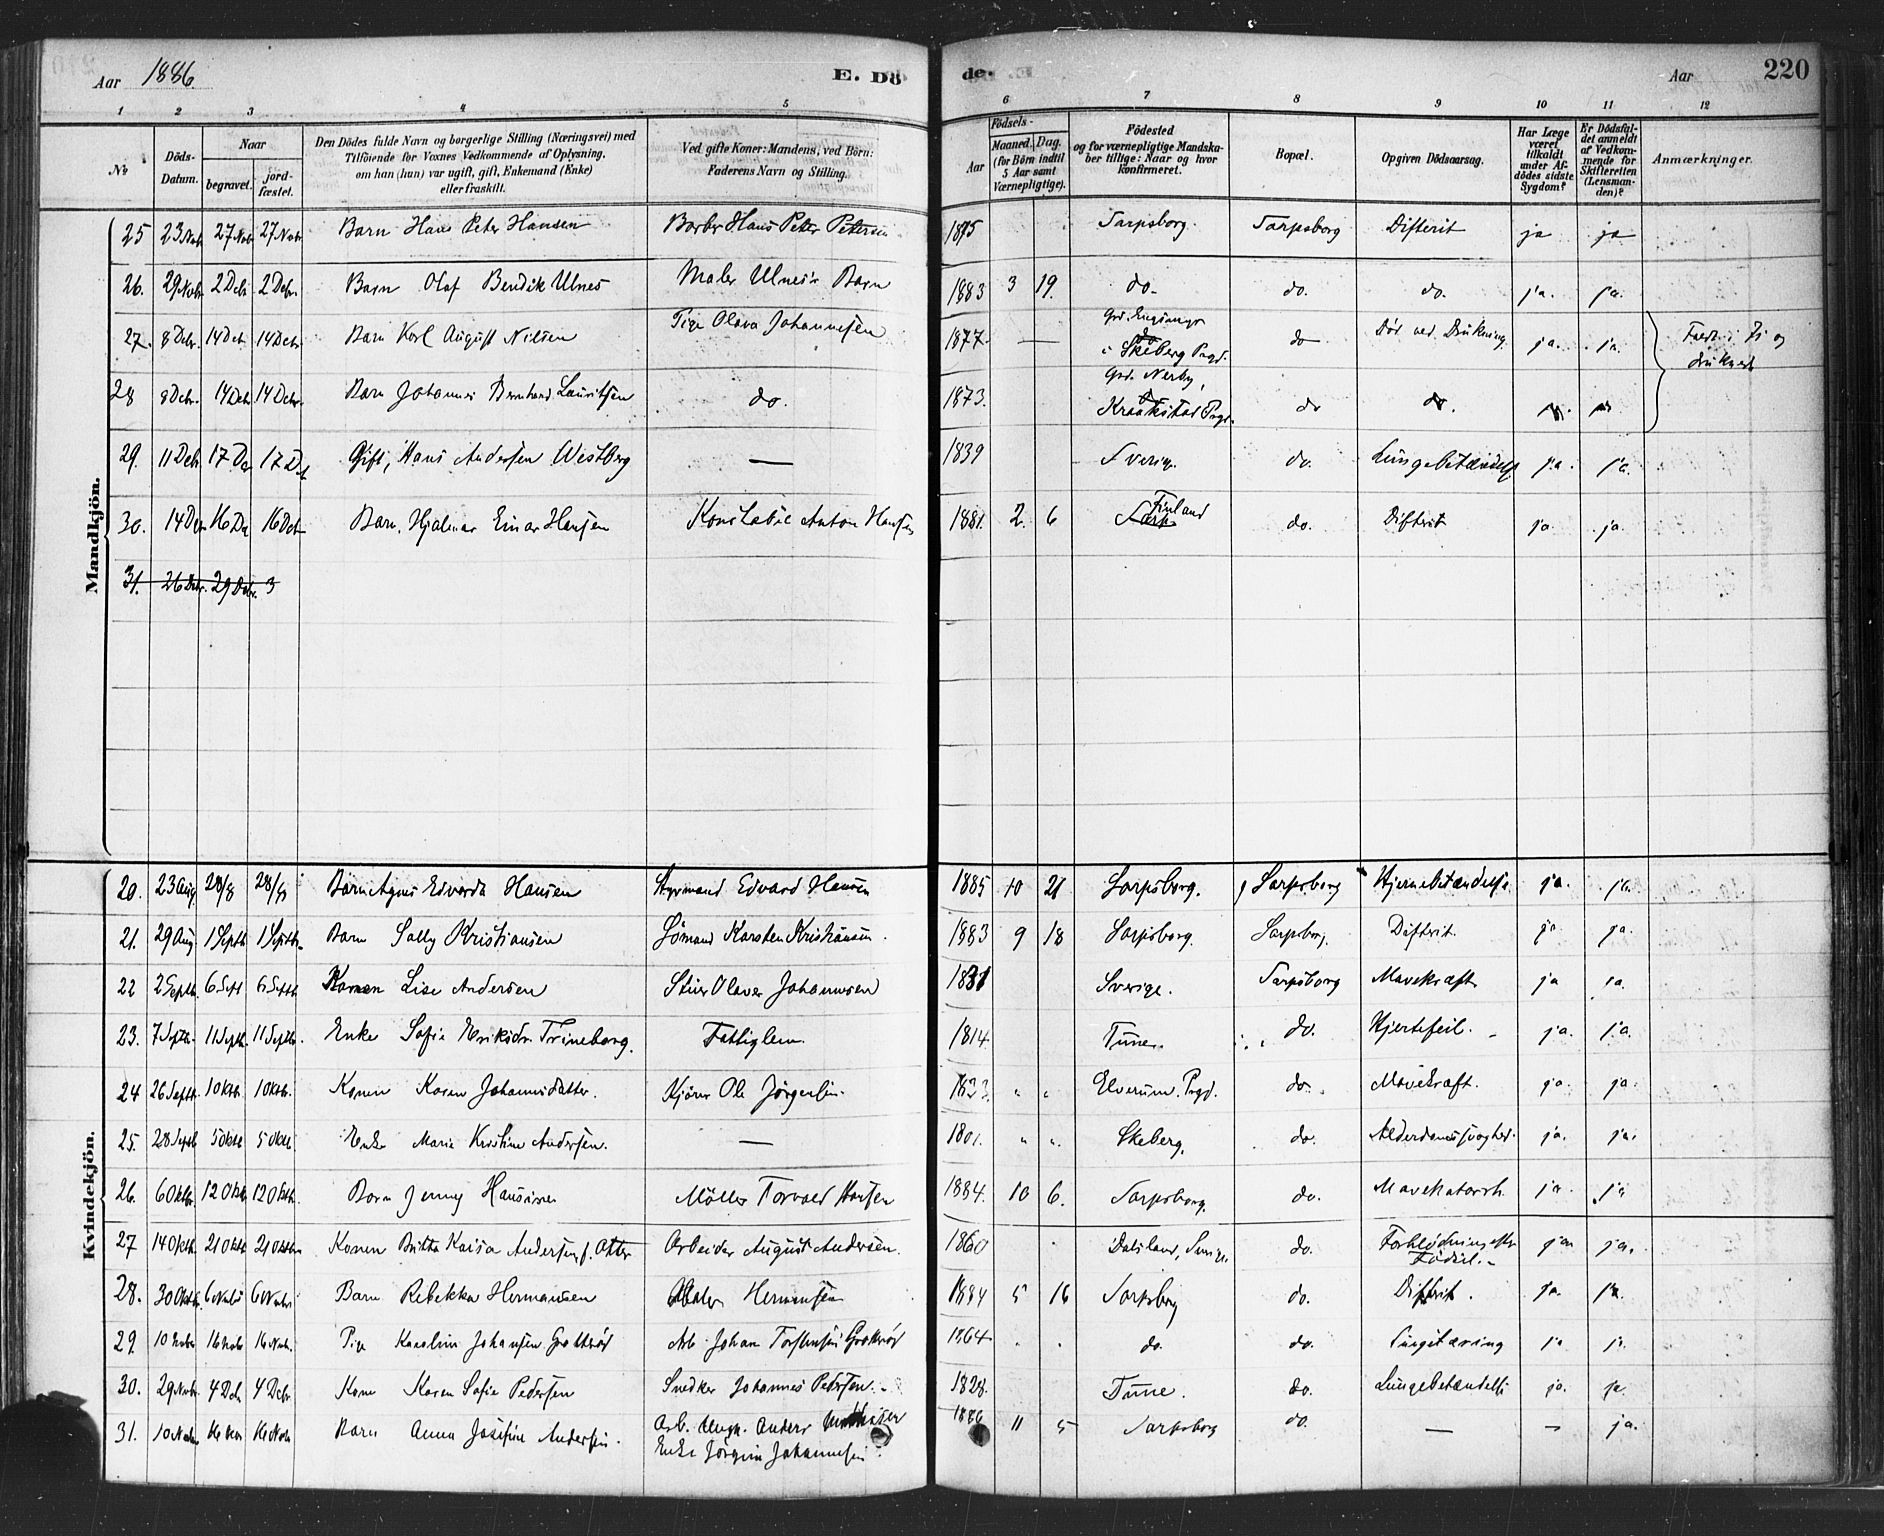 Aar 1886. E. Dö
de. Aar 220
1 2 3 4 5 6 7 8 9 10 11 12
No
Döds-Datum.
Naar
begravet.
jord-fæstet.
Den Dödes fulde Navn og borgerlige Stilling (Næringsvei) med
Tilföiende for Voxnes Vedkommende af Oplysning,
om han (hun) var ugift, gift, Enkemand (Enke)
eller fraskilt.
Ved gifte Koner: Mandens, ved Börn:
Faderens Navn og Stilling.
Födsels-
Aar
Maaned. Dag.
(for Börn indtil
5 Aar samt
Værnepligtige).
Födested
og for værnepligtige Mandska-
ber tillige: Naar og hvor
konfirmeret.
Bopæl.
Opgiven Dödsaarsag.
Har Læge
været
tilkaldt
under Af-
dödes sidste
Sygdom?
Er Dödsfal-
det anmeldt
af Vedkom-
mende for
Skifteretten
(Lensman-
den)?
Anmærkninger.
Mandkjön.
25 23 Nov. 27 Nov 27 Nov. Barn Hans Peter Hansen Barber Hans Peter Petersen 1875 Sarpsborg. Sarpsborg Difterit ja ja
26. 29 Novbr. 2 Decbr. 2 Decbr. Barn Olaf Bendik Ulnes Maler Ulnes's Barn 1883 3 19. do. do. do. ja. ja.
27. 8 Decbr. 14 Decb 14 Decbr. Barn Karl August Nilsen Pige Olava Johannesen 1877 — i Skeberg Pregd. do Död ved Drukning ja. ja. Faldt i Is og druknede
28 8 Decbr. 14 Decbr 14 Decbr. Barn Johannes Bernhard Lauritsen do. 1873. Grd. Nerby, Kraakstad Prgd. do do. ja. ja
29. 11 Decbr. 17 Dec 17 Dec Gift, Hans Andersen Westberg — 1839 Sverige. do. Lungebetændelse ja. ja.
30. 14 Decbr 16 Dec 16 Decbr Barn. Hjalmar Einar Hansen Konstabel Anton Hansen 1881. 2. 6 Finland do. Difterit ja ja.
31. 26 Decbr. 29 Decbr. 3
Kvindekjön.
20. 23 Aug. 28/8 28/8 Barn Agnes Edvarda Hansen Styrmand Edvard Hansen 1885 10 21 Sarpsborg. Sarpsborg Hjernebetændelse ja. ja.
21. 29 Aug 1 Septb 1 Septbr. Barn Sally Kristiansen Sömand Karsten Kristiansen. 1883 9 18 Sarpsborg. Sarpsborg. Difterit. ja ja.
22 2 Septb. 6 Sept 6 Septb Konen Lise Andersen Olaver Johannesen 1831 Sverige. Sarpsborg Mavekræft ja ja.
23. 7 Septbr. 11 Septb. 11 Septbr. Enke Sofie Eriksdr. Trineborg. Fattiglem. 1814. Tune. do. Hjertefeil. ja. ja.
24 26 Septbr. 1 Oktb. 1 Oktb. Konen Karen Johannisdatter. Kjörer Ole Jörgensen. 1823. " " Elverum. Prgd. do. Mavekræft. ja. ja.
25. 28 Septb 5 Oktb 5 Oktb Enke Marie Kirstine Andersen. — 1801. " " Skeberg. do. Alderdomssvaghed. ja. ja.
26. 6 Oktbr. 12 Oktb. 12 Oktbr. Barn Jenny Hansen Möller Torvald Hansen 1884. 10 6. Sarpsborg. do. Mavekatarrh. ja. ja
27 14 Oktb. 21 Oktb 21 Oktbr Konen Britta Kaisa Andersen, f. Otter Arbeider August Andersen. 1860 Dalsland, Sverige. do. Forblödning efter Födsel. ja ja.
28. 30 Oktbr. 6 Novbr 6 Novbr Barn Rebekka Hermansen Maler Hermansen 1884 5 16 Sarpsborg do. Difterit. ja. ja.
29. 10 Novbr 16 Novb 16 Novb. Pige Karoline Johansen Grotteröd Arb. Johan Torstensen Grotteröd 1864 . . do. do. Lungetæring ja ja
30. 29 Novbr. 4 Decb 4 Decbr. Kone Karen Sofie Pedersen Snedker Johannes Pedersen. 1828. Tune. do. Lungebetændelse ja. ja.
31. 10 Novbr 16 Nov 16 Novb Barn Anna Josefine Andersen. Arb. Ungk. Anders Mathisen
Enke Jörgine Johannesen. 1886 11 5 Sarpsborg do. — — ja.